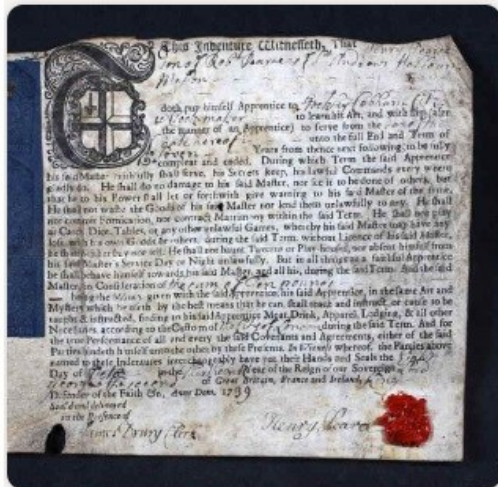 This Indenture Witnesseth, That Henry
Son of Robt Pearce of St Andrews Holborn
doth put himself Apprentice to
to learn his Art, and with
the manner of an Apprentice) to serve from the
unto the full End and Term of
Seven Years from thence next following, to be fully
compleat and ended. During which Term the said Apprentice
his said Master faithfully shall serve, his Secrets keep, his lawful Commands every where
gladly do. He shall do no damage to his said Master, nor see it to be done of others, but
that he to his Power shall let or forthwith give warning to his said Master of the same.
He shall not waste the Goods of his said Master nor lend them unlawfully to any. He shall
not commit Fornication, nor contract Matrimony within the said Term. He shall not play
at Cards, Dice, Tables, or any other unlawful Games, whereby his said Master may have any
loss, with his own Goods or others, during the said Term, without Licence of his said Master,
he shall neither buy nor sell. He shall not haunt Taverns or Play-houses, nor absent himself from
his said Master's Service Day or Night unlawfully. But in all things as a faithful Apprentice
he shall behave himself towards his said Master, and all his, during the said Term. And the said
Master, in Consideration of the sum of Ten pounds
being the Money given with the said Apprentice, his said Apprentice, in the same Art and
Mystery which he useth by the best means that he can, shall teach and instruct, or cause to be
taught & instructed, finding unto his said Apprentice Meat, Drink, Apparel, Lodging, & all other
Necessaries, according to the Custom of London during the said Term. And for
the true Performance of all and every the said Covenants and Agreements, either of the said
Parties bindeth himself unto the other by these Presents. In Witness whereof, the Parties above
named to these Indentures interchangeably have put their Hands and Seals the
Day of in the Year of the Reign of our Sovereign
George the Second of Great Britain, France and Ireland, King
Defender of the Faith &c, Anno Dom. 1739
Sealed and delivered
in the Presence of
James Drury Clerk
Henry Pearce